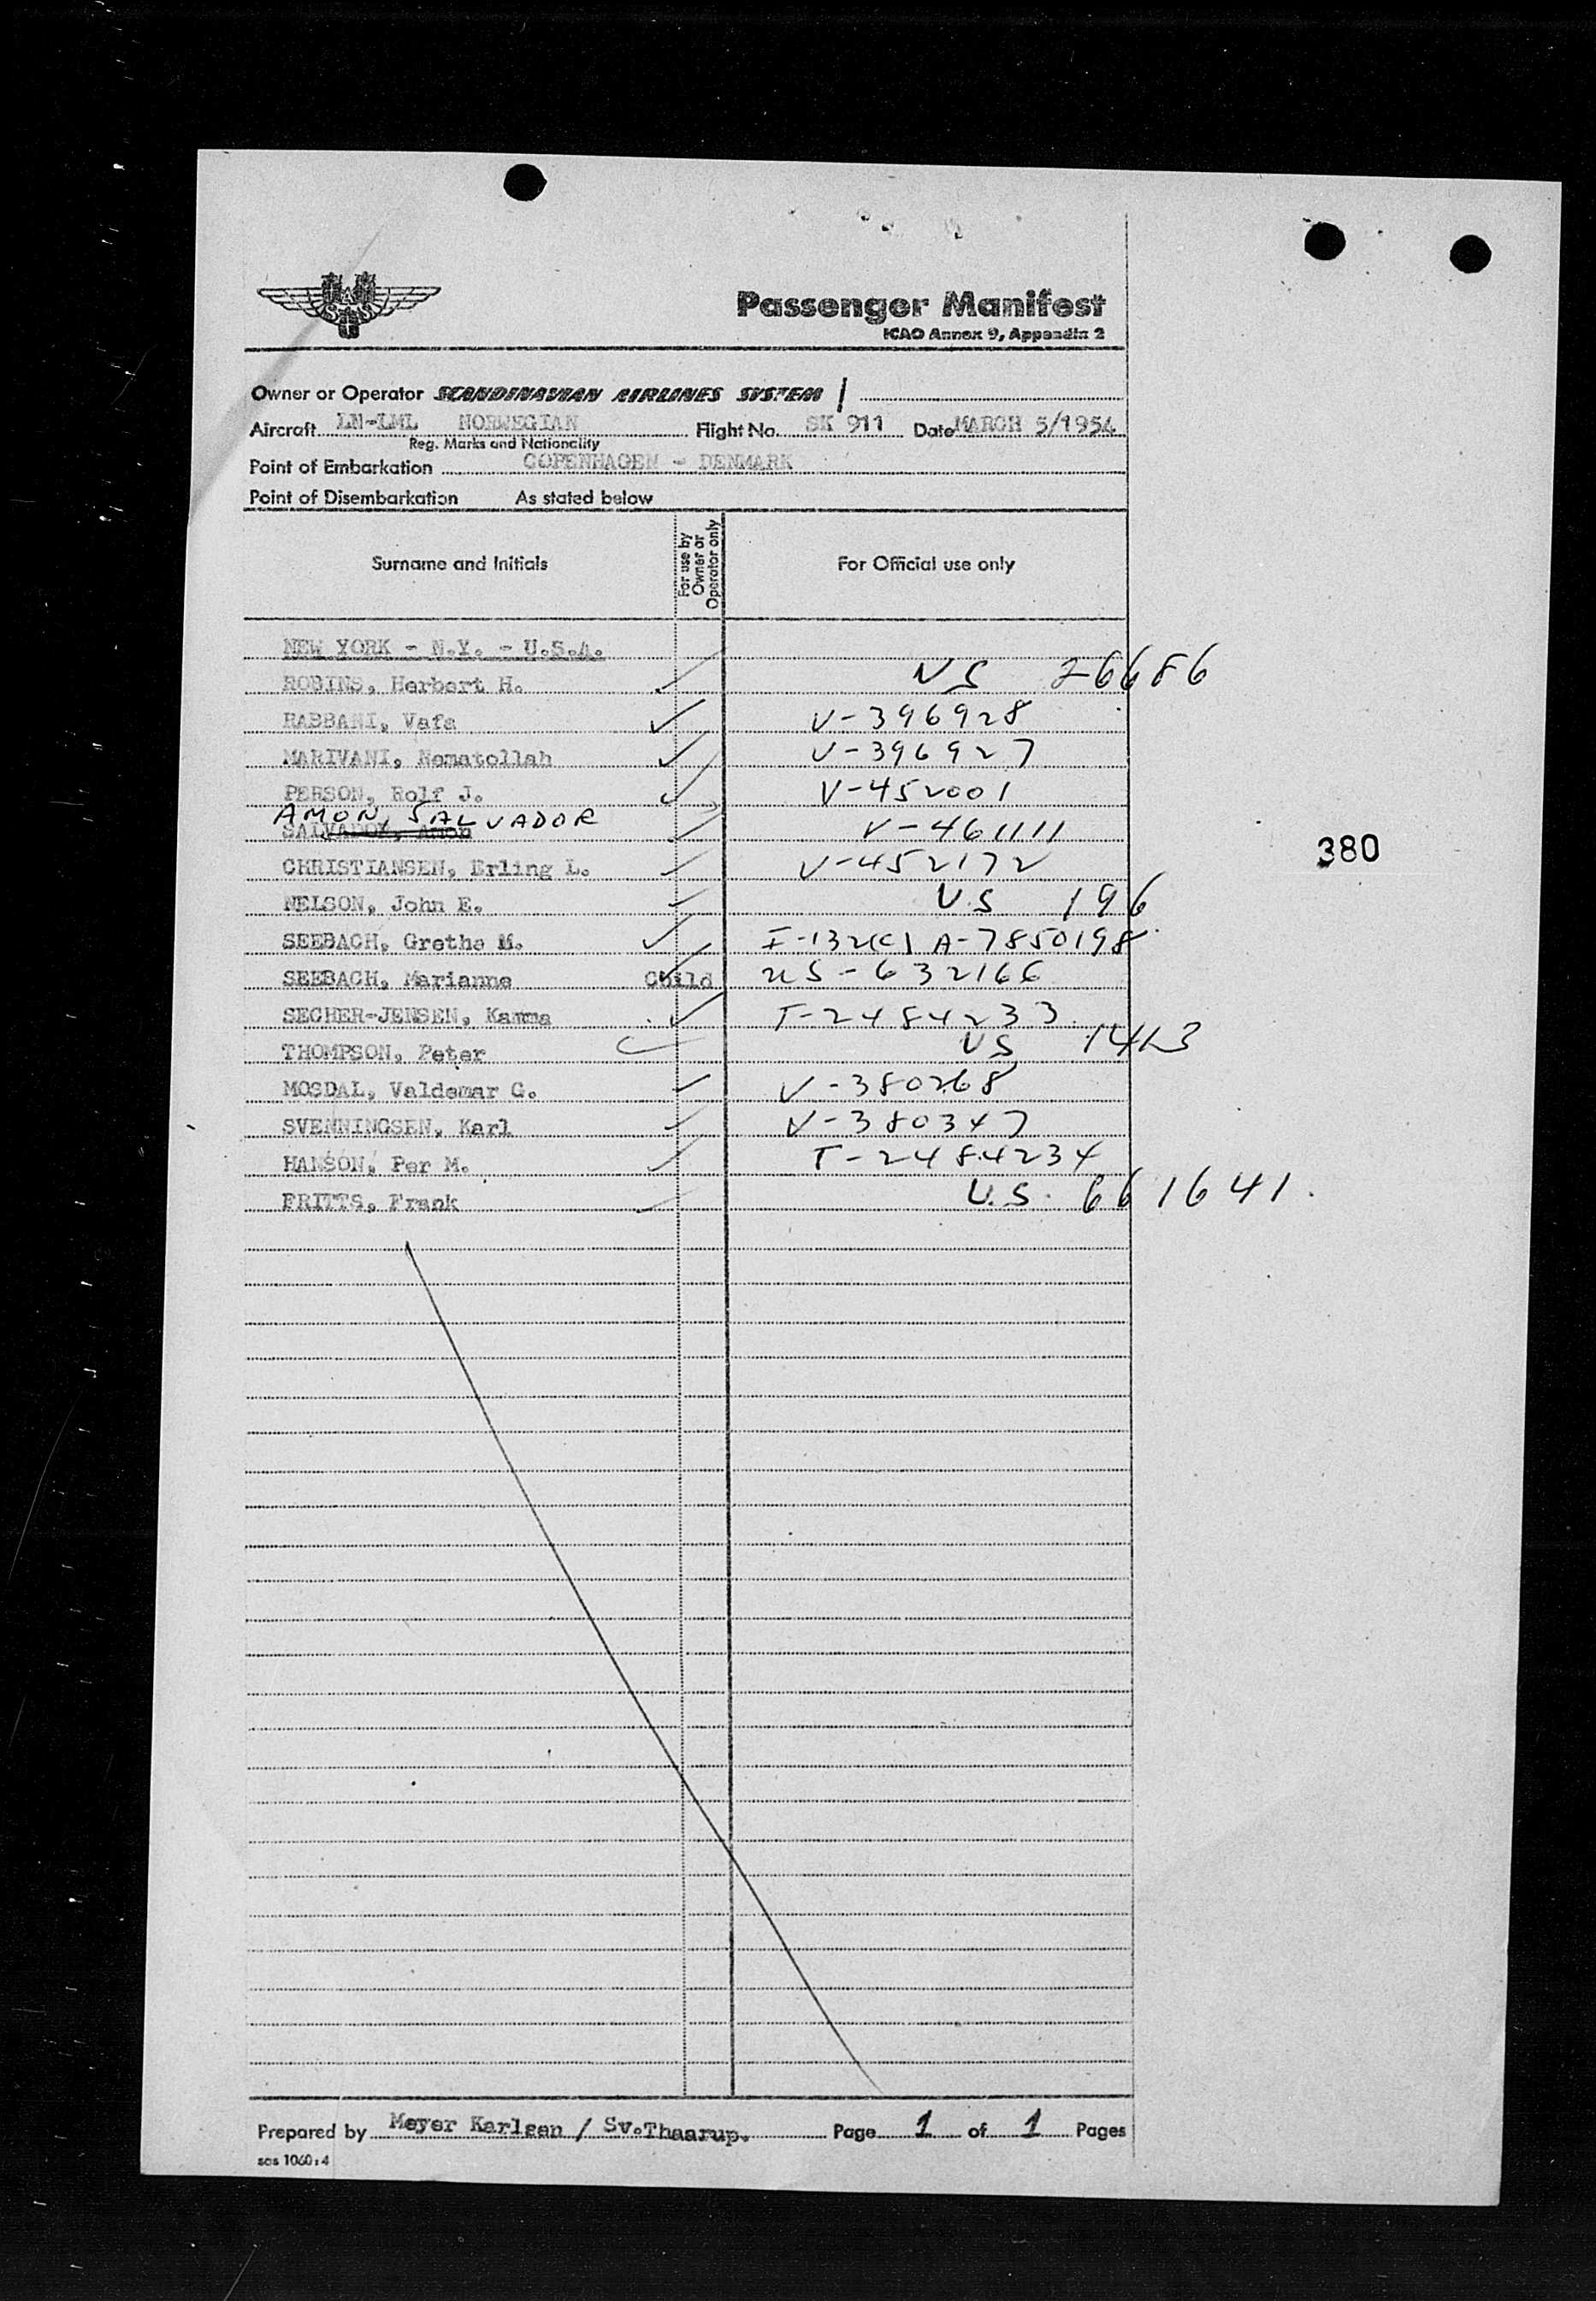 SAS
Passenger Manifest
ICAO Annex 9, Appendix 2
Owner or Operator SCANDINAVIAN AIRLINES SYSTEM
Aircraft LN-LML NORWEGIAN Flight No. SK 911 Date MARCH 5/1954
Reg. Marks and Nationality
Point of Embarkation COPENHAGEN - DENMARK
Point of Disembarkation As stated below
Surname and Initials For use by Owner or Operator only For Official use only
NEW YORK - N.Y. - U.S.A.
ROBINS, Herbert H. US 26686
RABBANI, Vafa V-396928
MARIVANI, Nematollah V-396927
PERSON, Rolf J. V-452001
AMON, SALVADOR
SALVADOR, Amon V-461111
CHRISTIANSEN, Erling L. V-452172
NELSON, John E. U.S 196
380
SEEBACH, Grethe M. I-132(c) A-7850198
SEEBACH, Marianne Child US-632166
SECHER-JENSEN, Kamma T-2484233
THOMPSON, Peter US
MOSDAL, Valdemar G. V-380268
SVENNINGSEN, Karl V-380347
HANSON, Per M. T-2484234
FRITTS, Frank U.S. 661641.
Prepared by Meyer Karlsen / Sv.Thaarup. Page 1 of 1 Pages
sas 1060:4